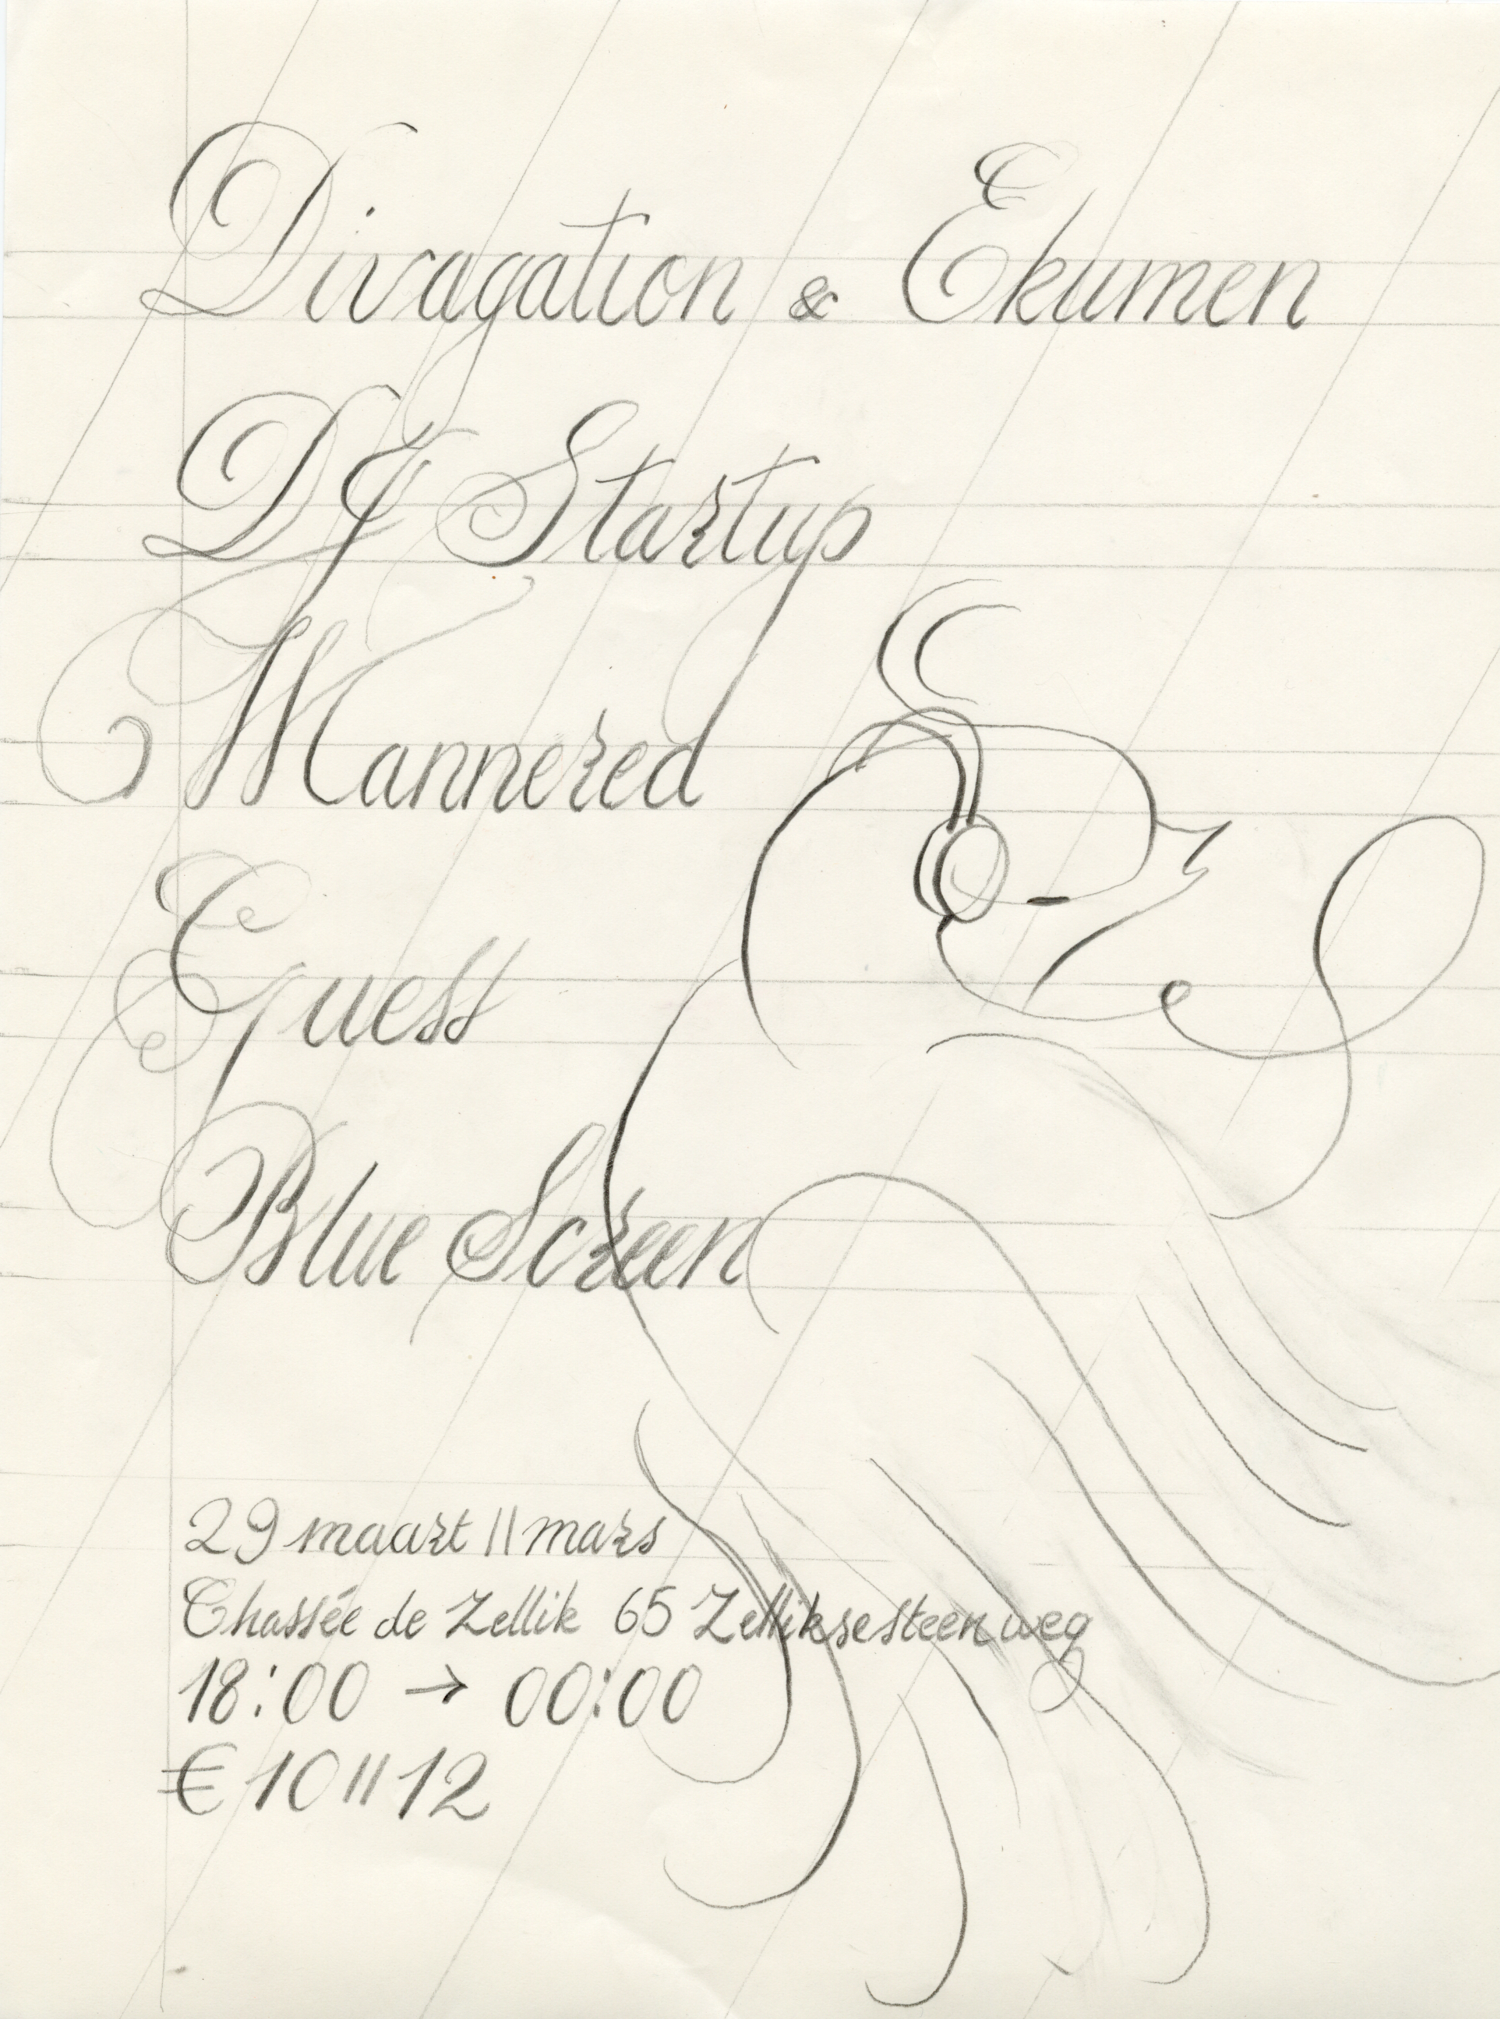 Divagation & Ekumen
DJ Startup
Mannered
Guess
Blue Screen
29 maart || mars
Chassée de Zellik 65 Zelliksesteenweg
18:00 → 00:00
€ 10 || 12